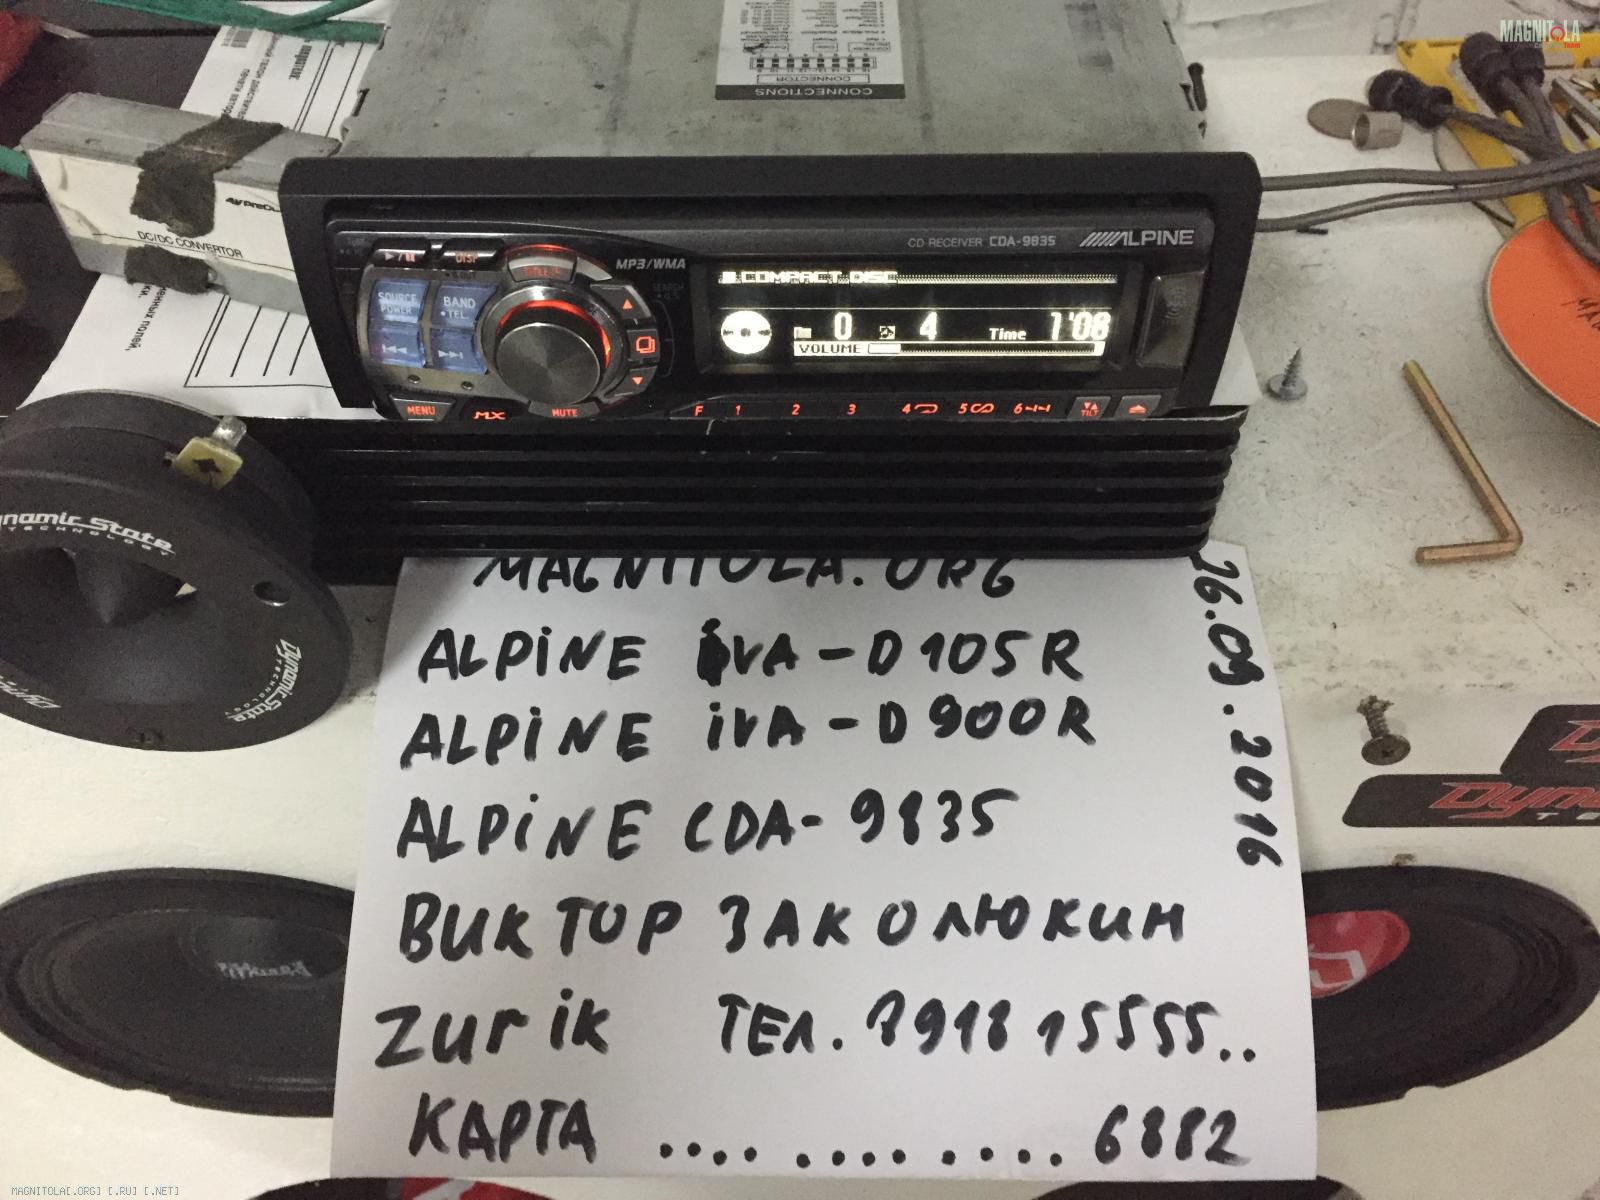 MAGNITOLA
Car Team
CONNECTIONS
CONNECTOR
DC/DC CONVERTOR
CD RECEIVER CDA-9835 ALPINE
DISP
TITLE
MP3/WMA
SEARCH
SOURCE
POWER
BAND
TEL.
COMPACT DISC
0 4 Time 1'08
VOLUME
MENU MX MUTE F 1 2 3 4 5 6 TILT
Dynamic State
TECHNOLOGY
Dynamic State
TECHNOLOGY
MAGNITOLA.ORG
ALPiNE iVA-D105R
ALPiNE iVA-D900R
ALPiNE CDA-9835
ВИКТОР ЗАКОЛЮКИН
Zurik ТЕЛ. 7918 15555..
КАРТА .... .... .... 6882
26.09.2016
MAGNITOLA[.ORG] [.RU] [.NET]